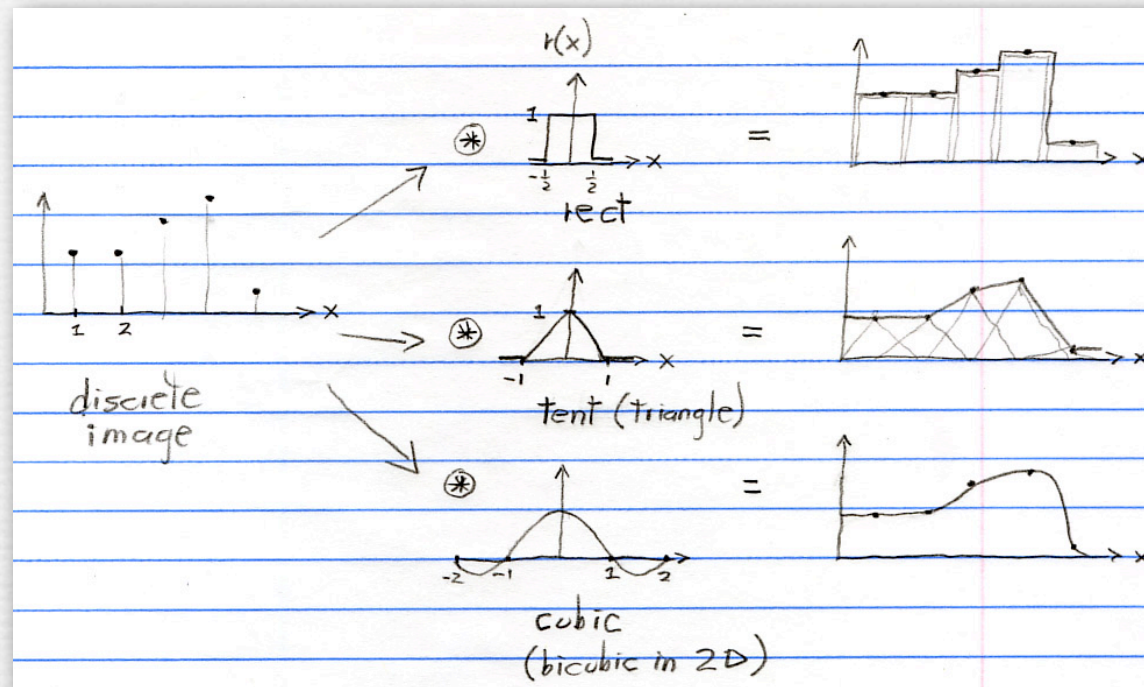 r(x)
1
⊛
=
x
x
-1/2
1/2
rect
x
1
2
discrete
image
1
⊛
=
x
x
-1
1
tent (triangle)
⊛
=
-2
-1
1
2
x
cubic
(bicubic in 2D)